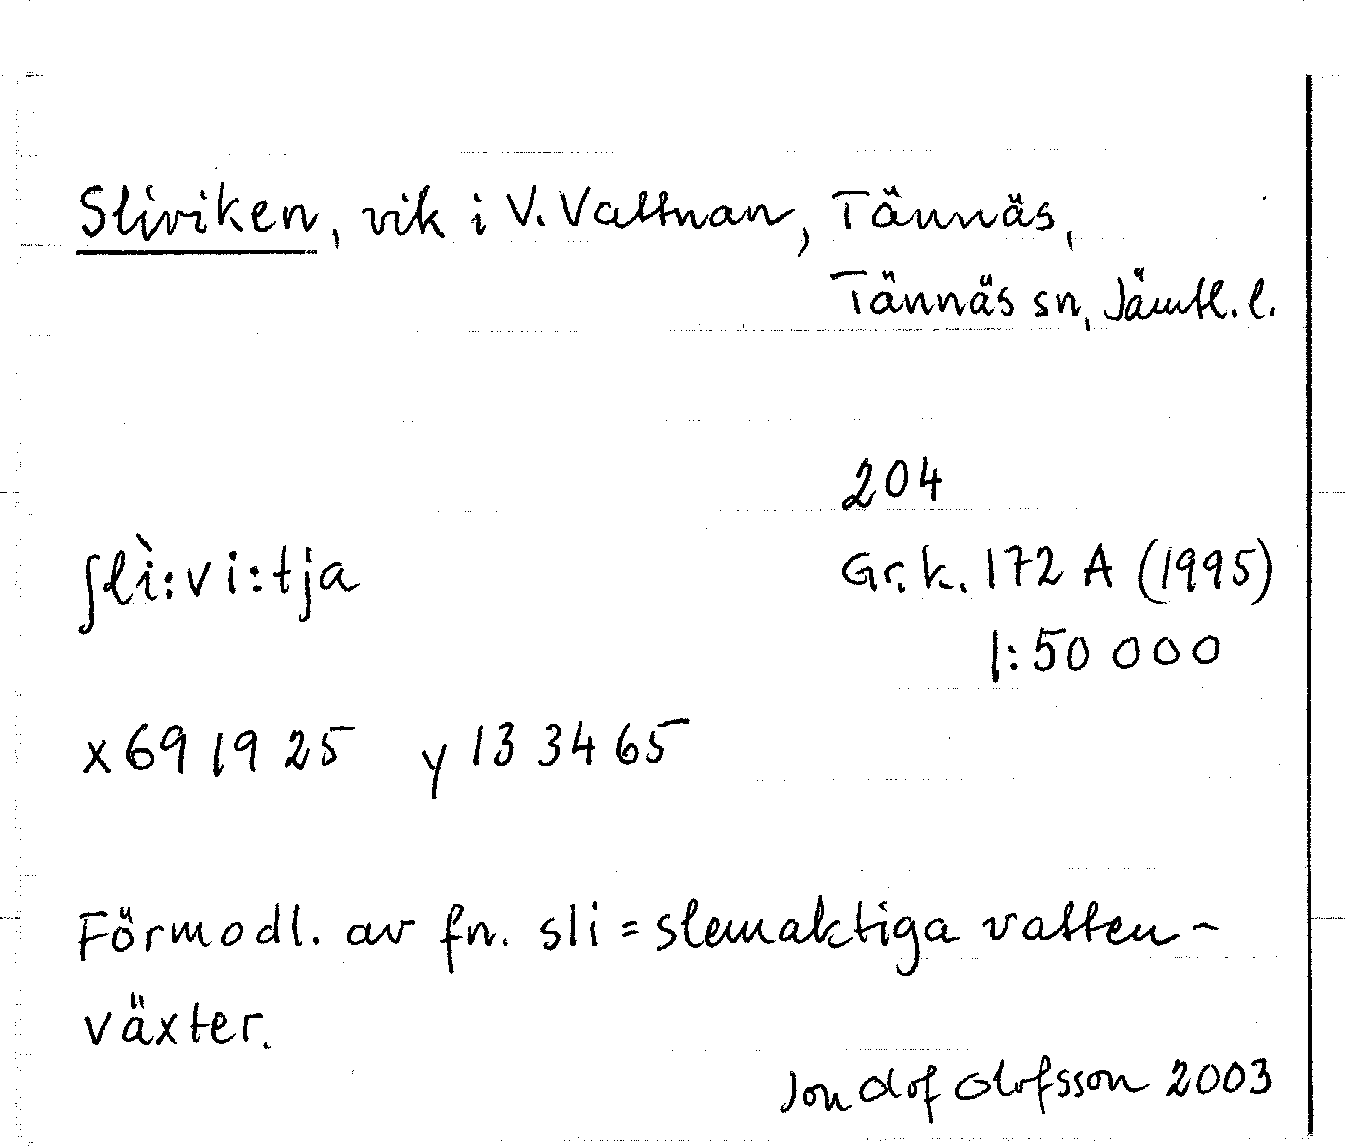 Sliviken, vik i V. Vattnan, Tännäs,
Tännäs sn, Jämtl. l.
204
ʃlì:vi:tja
Gr. k. 172 A (1995)
1:50 000
x 69 19 25 y 13 34 65
Förmodl. av fn. sli = slemaktiga vatten-
växter.
Jon Olof Olofsson 2003